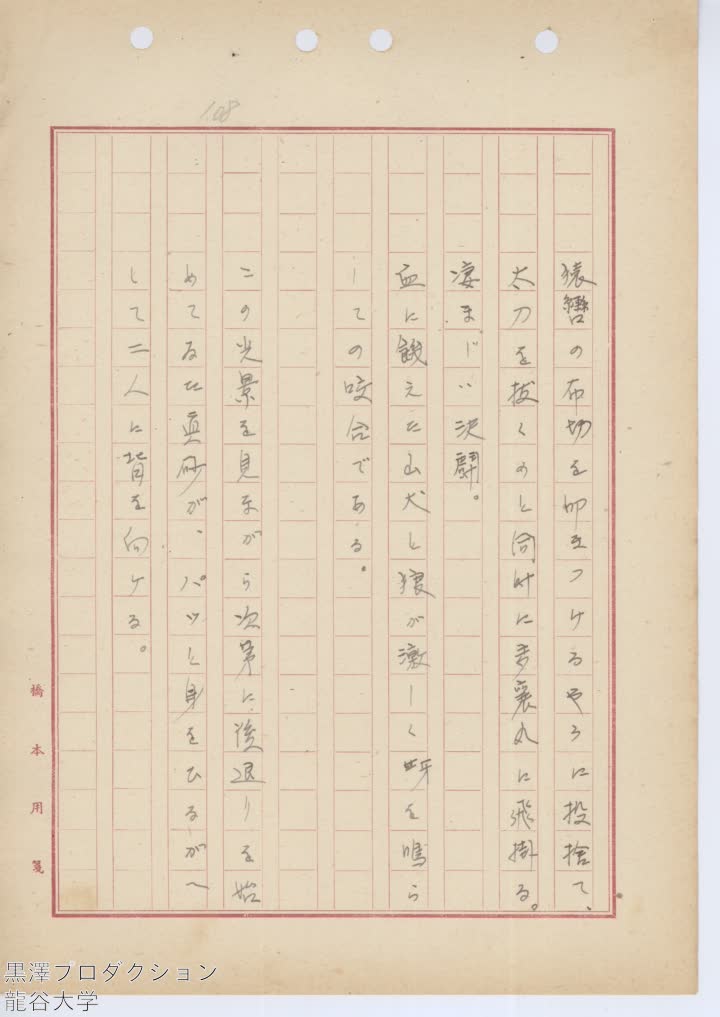 108
猿轡の布切を叩きつけるやうに投捨て、
太刀を抜くのと同時に多襄丸に飛掛る。
凄まじい決闘。
血に餓えた山犬と狼が激しく牙を鳴ら
しての咬合である。
この光景を見ながら次第に後退りを始
めてゐた真砂が、パッと身をひるがへ
して二人に背を向ける。
橋本用箋
黒澤プロダクション
龍谷大学